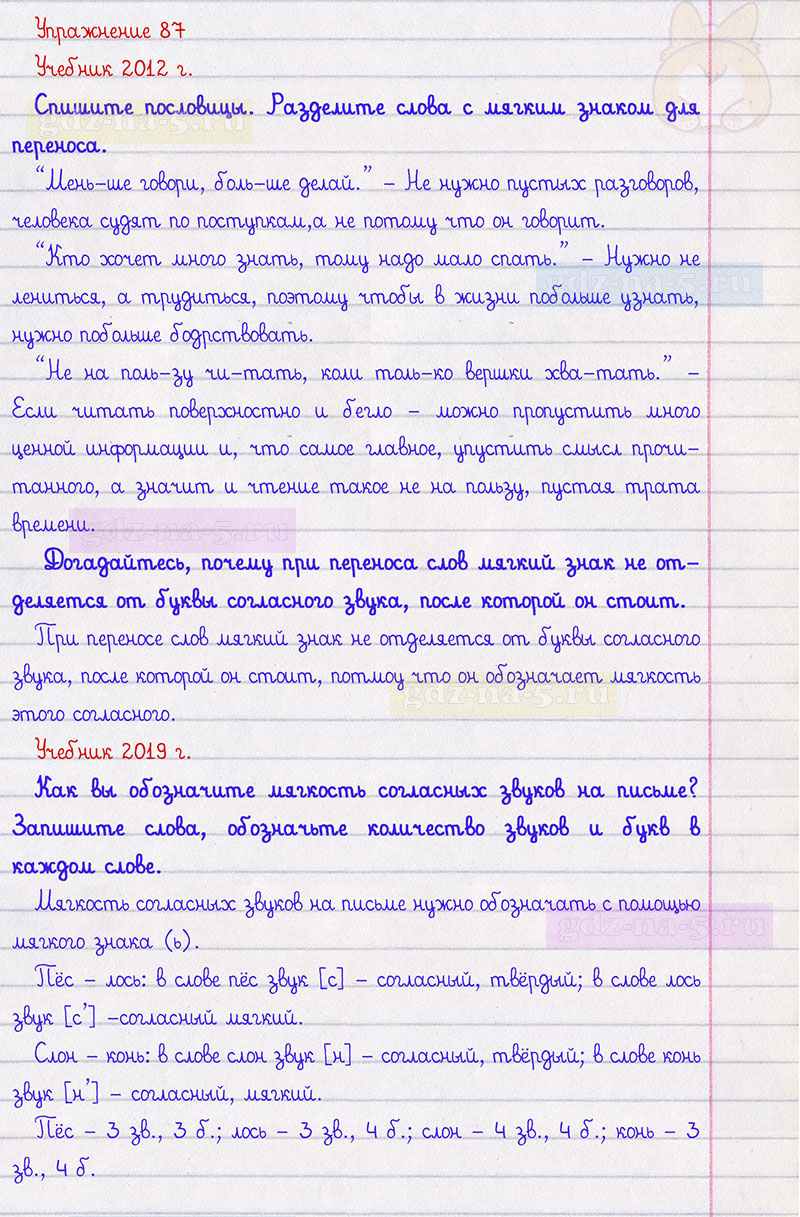 Упражнение 87
Учебник 2012 г.
Спишите пословицы. Разделите слова с мягким знаком для
переноса.
gdz-na-5.ru
“Мень-ше говори, боль-ше делай.” – Не нужно пустых разговоров,
человека судят по поступкам,а не потому что он говорит.
“Кто хочет много знать, тому надо мало спать.” – Нужно не
лениться, а трудиться, поэтому чтобы в жизни побольше узнать,
gdz-na-5.ru
нужно побольше бодрствовать.
“Не на поль-зу чи-тать, коли толь-ко вершки хва-тать.” –
Если читать поверхностно и бегло – можно пропустить много
ценной информации и, что самое главное, упустить смысл прочи-
танного, а значит и чтение такое не на пользу, пустая трата
времени.
gdz-na-5.ru
Догадайтесь, почему при переноса слов мягкий знак не от-
деляется от буквы согласного звука, после которой он стоит.
При переносе слов мягкий знак не отделяется от буквы согласного
звука, после которой он стоит, потмоу что он обозначает мягкость
gdz-na-5.ru
этого согласного.
Учебник 2019 г.
Как вы обозначите мягкость согласных звуков на письме?
Запишите слова, обозначьте количество звуков и букв в
каждом слове.
Мягкость согласных звуков на письме нужно обозначать с помощью
gdz-na-5.ru
мягкого знака (ь).
Пёс – лось: в слове пёс звук [с] – согласный, твёрдый; в слове лось
звук [с’] –согласный мягкий.
Слон – конь: в слове слон звук [н] – согласный, твёрдый; в слове конь
звук [н’] – согласный, мягкий.
Пёс – 3 зв., 3 б.; лось – 3 зв., 4 б.; слон – 4 зв., 4 б.; конь – 3
зв., 4 б.